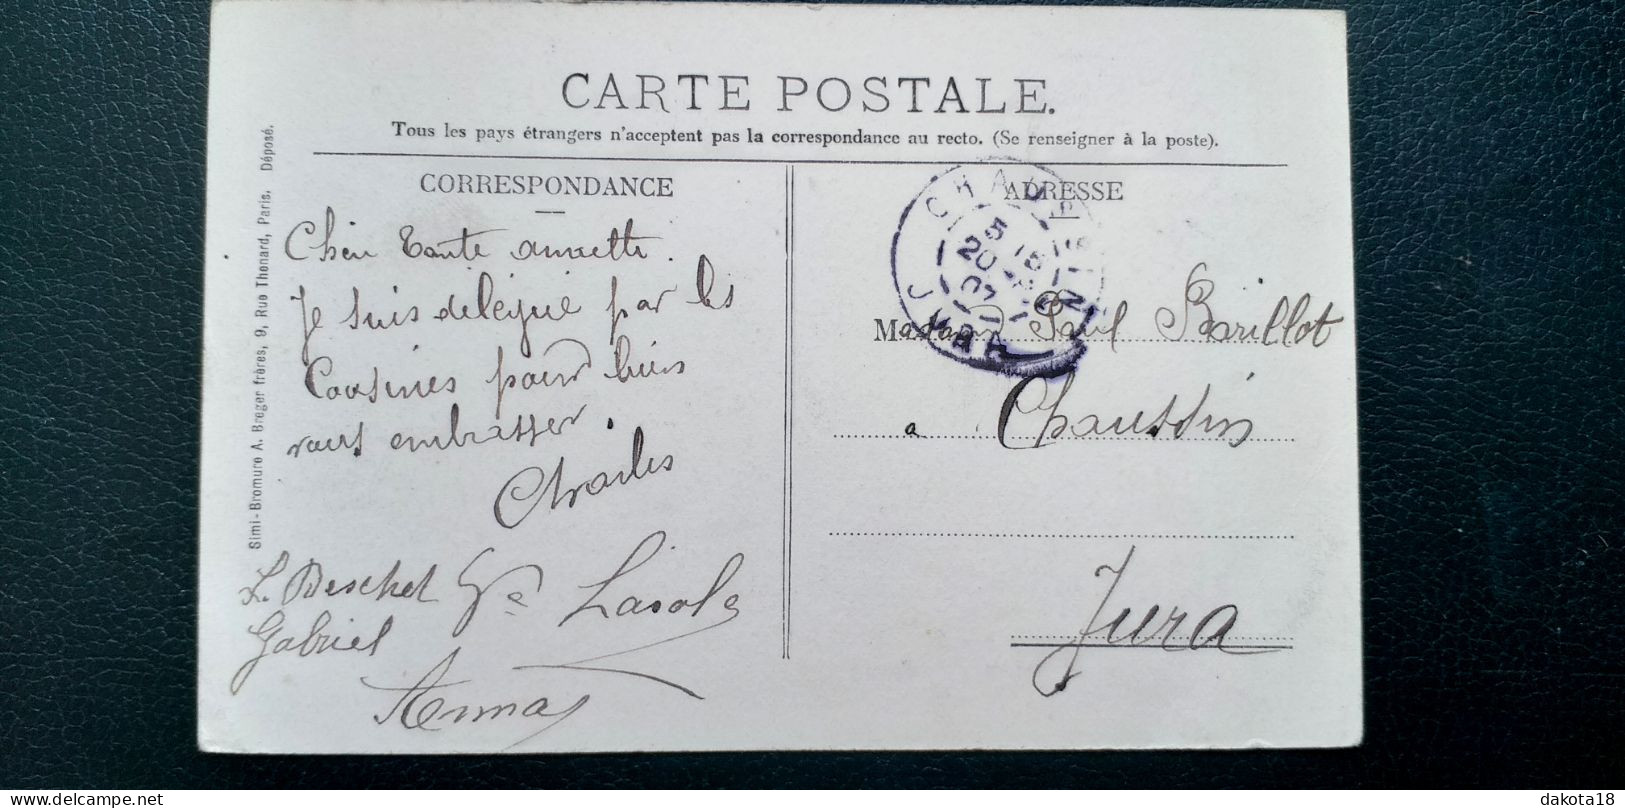 CARTE POSTALE.
Tous les pays étrangers n'acceptent pas la correspondance au recto. (Se renseigner à la poste).
Simi-Bromure A. Breger frères, 9, Rue Thenard, Paris. Déposé.
CORRESPONDANCE
Chère tante annette.
Je suis délégué par les
Cousines pour bien
vous embrasser.
Charles
L. Beschet
Gabriel
Anna
ADRESSE
CHAUSSIN
5
20
07
JURA
Madame Paul Barillot
a Chaussin
Jura
dakota18